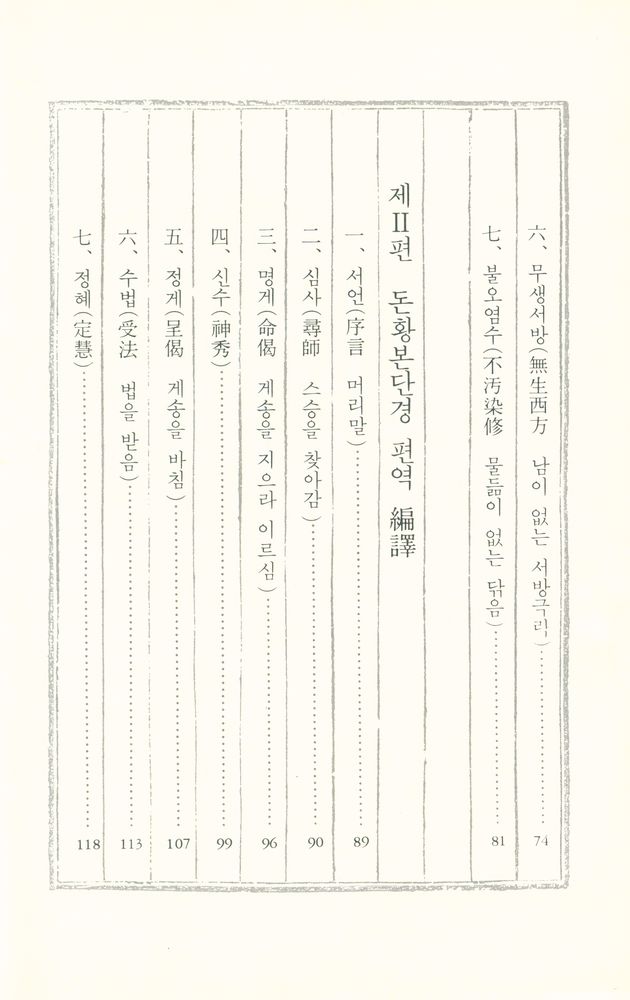 六、 무생서방(無生西方 남이 없는 서방극락)……………………74
七、 불오염수(不汚染修 물듦이 없는 닦음)……………………81
제Ⅱ편 돈황본단경 편역 編譯
一、 서언(序言 머리말)……………………89
二、 심사(尋師 스승을 찾아감)……………………90
三、 명게(命偈 게송을 지으라 이르심)……………………96
四、 신수(神秀)……………………99
五、 정게(呈偈 게송을 바침)……………………107
六、 수법(受法 법을 받음)……………………113
七、 정혜(定慧)……………………118